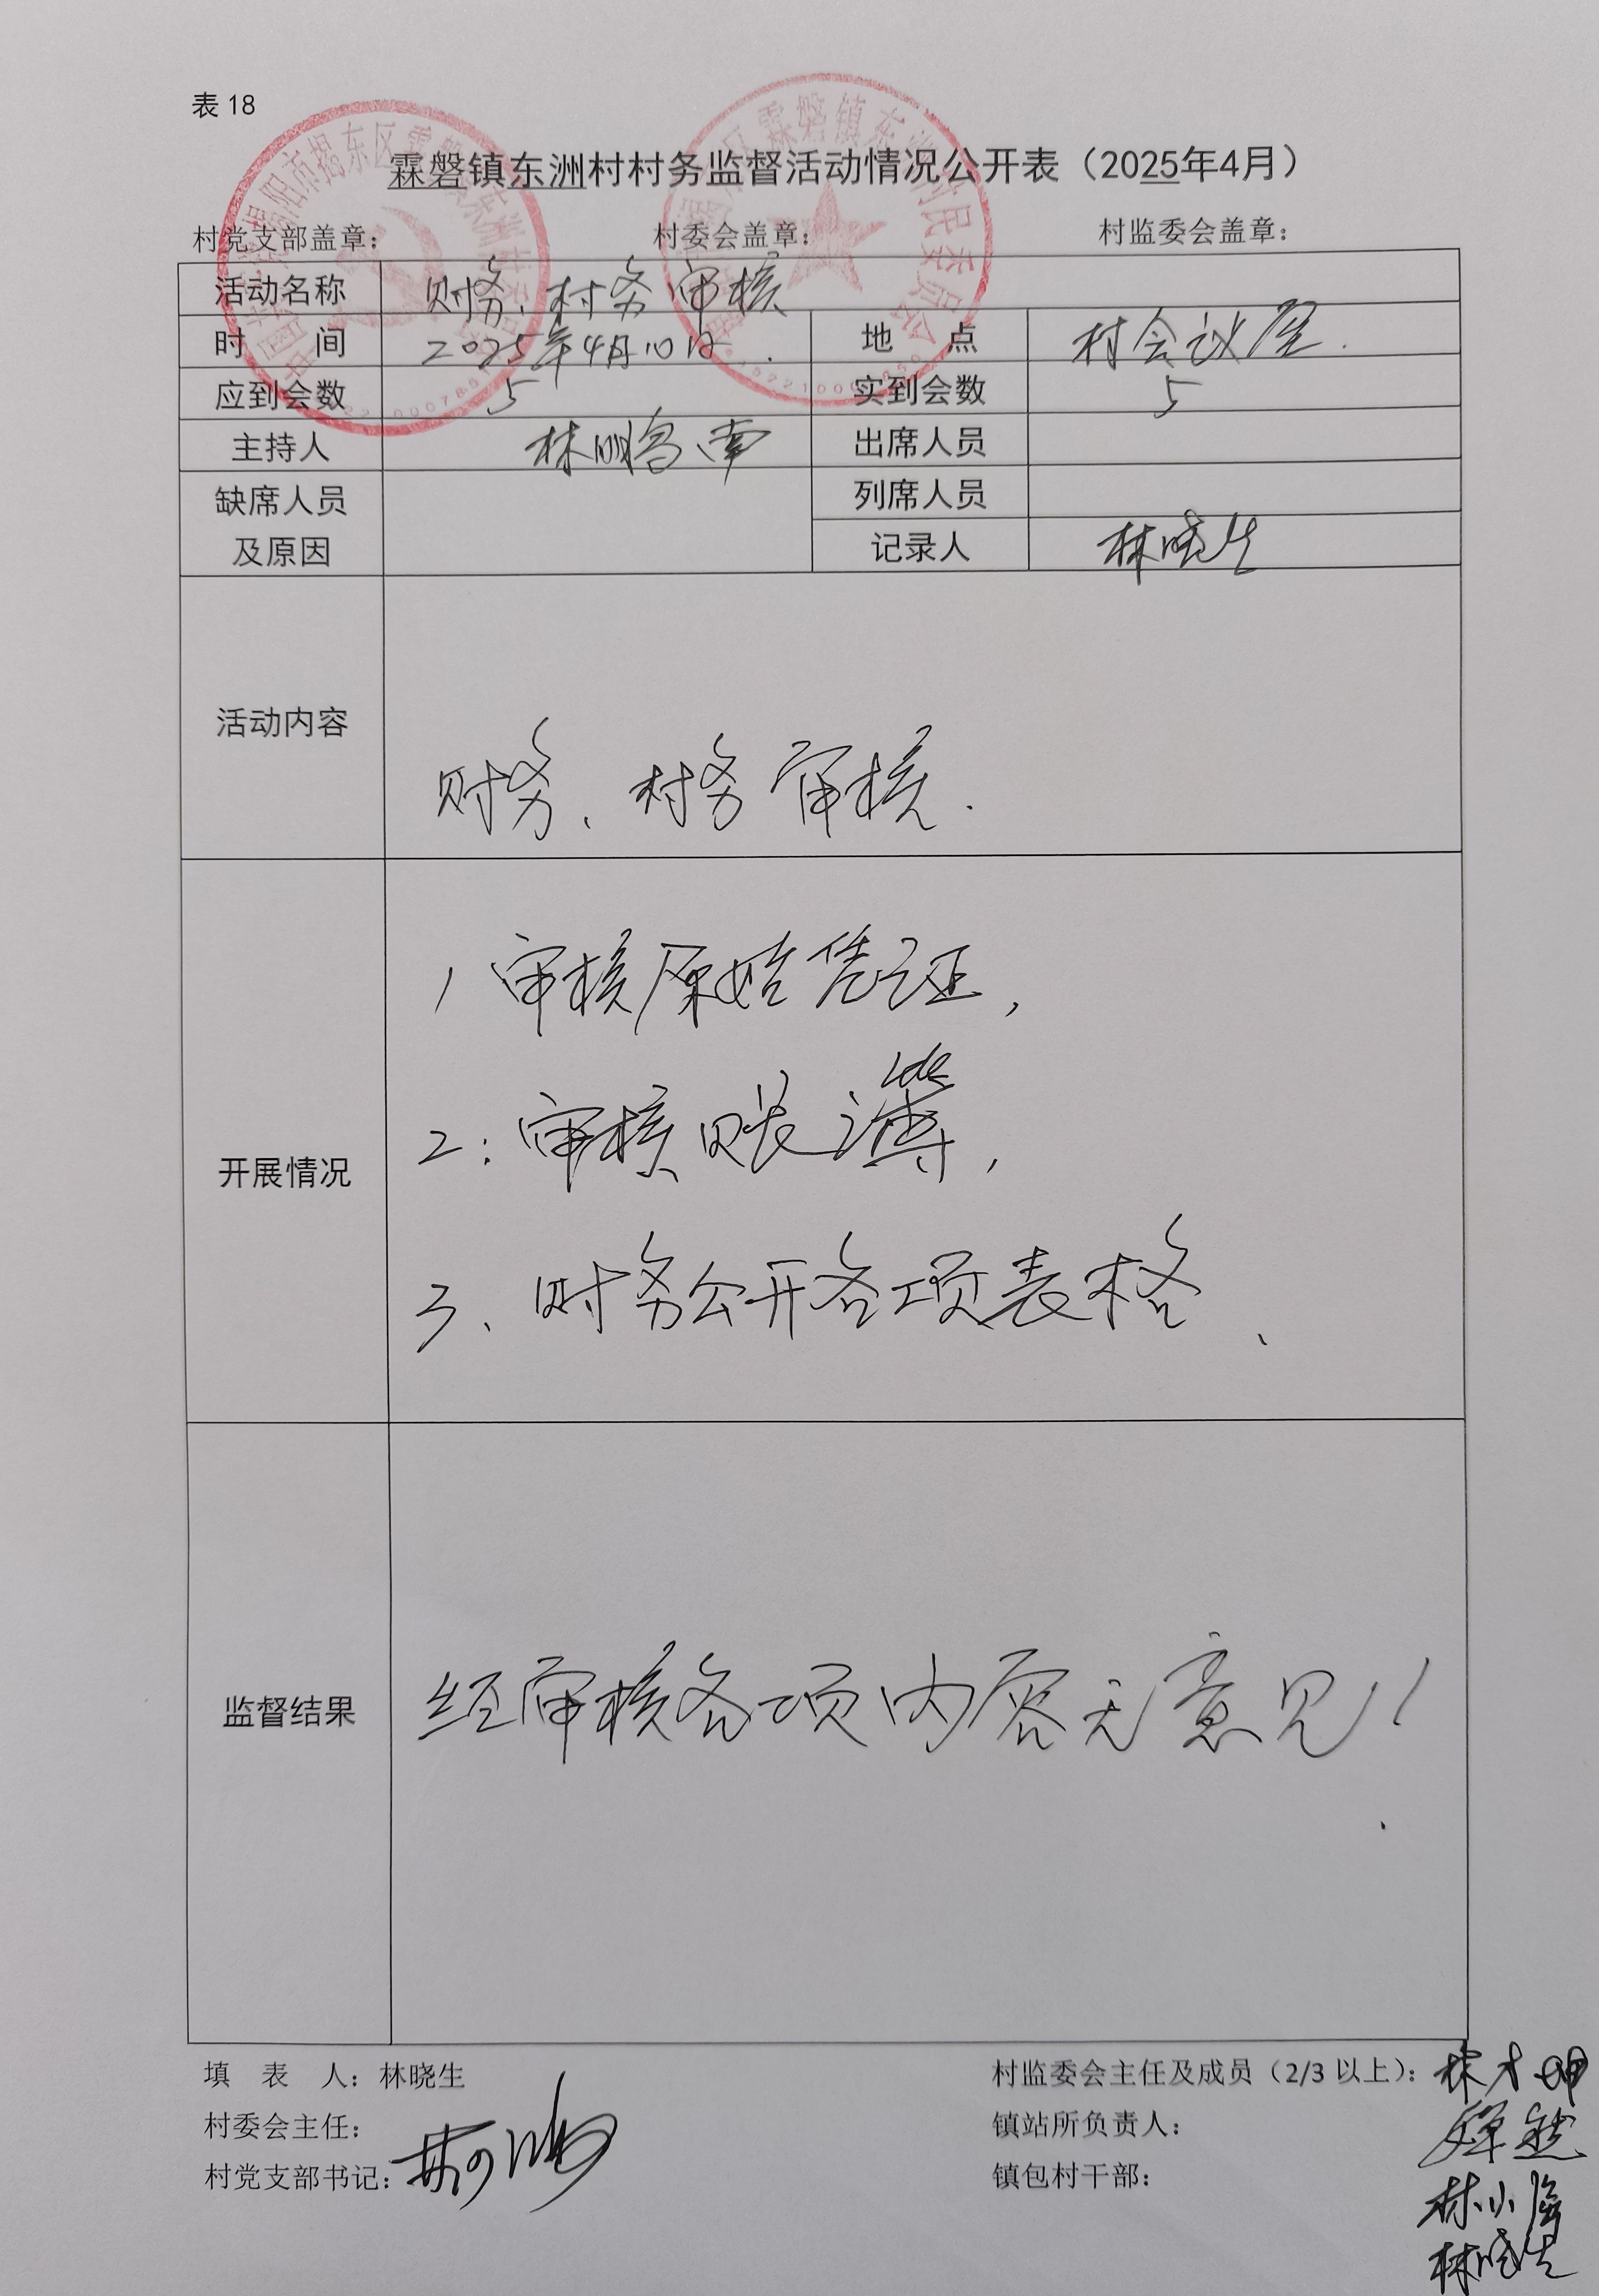 表 18
霖磐镇东洲村村务监督活动情况公开表（2025年4月）
村党支部盖章： 村委会盖章： 村监委会盖章：
活动名称 财务、村务审核
时 间 2025年4月10日 地 点 村会议室.
应到会数 5 实到会数 5
主持人 林鹏南 出席人员
缺席人员及原因 列席人员
记录人 林晓生
活动内容 财务、村务审核.
开展情况
1 审核原始凭证,
2: 审核账簿,
3、财务公开各项表格、
监督结果 经审核各项内容无意见!
填 表 人：林晓生 村监委会主任及成员（2/3 以上）：
村委会主任： 镇站所负责人：
村党支部书记： 镇包村干部：
林晓生